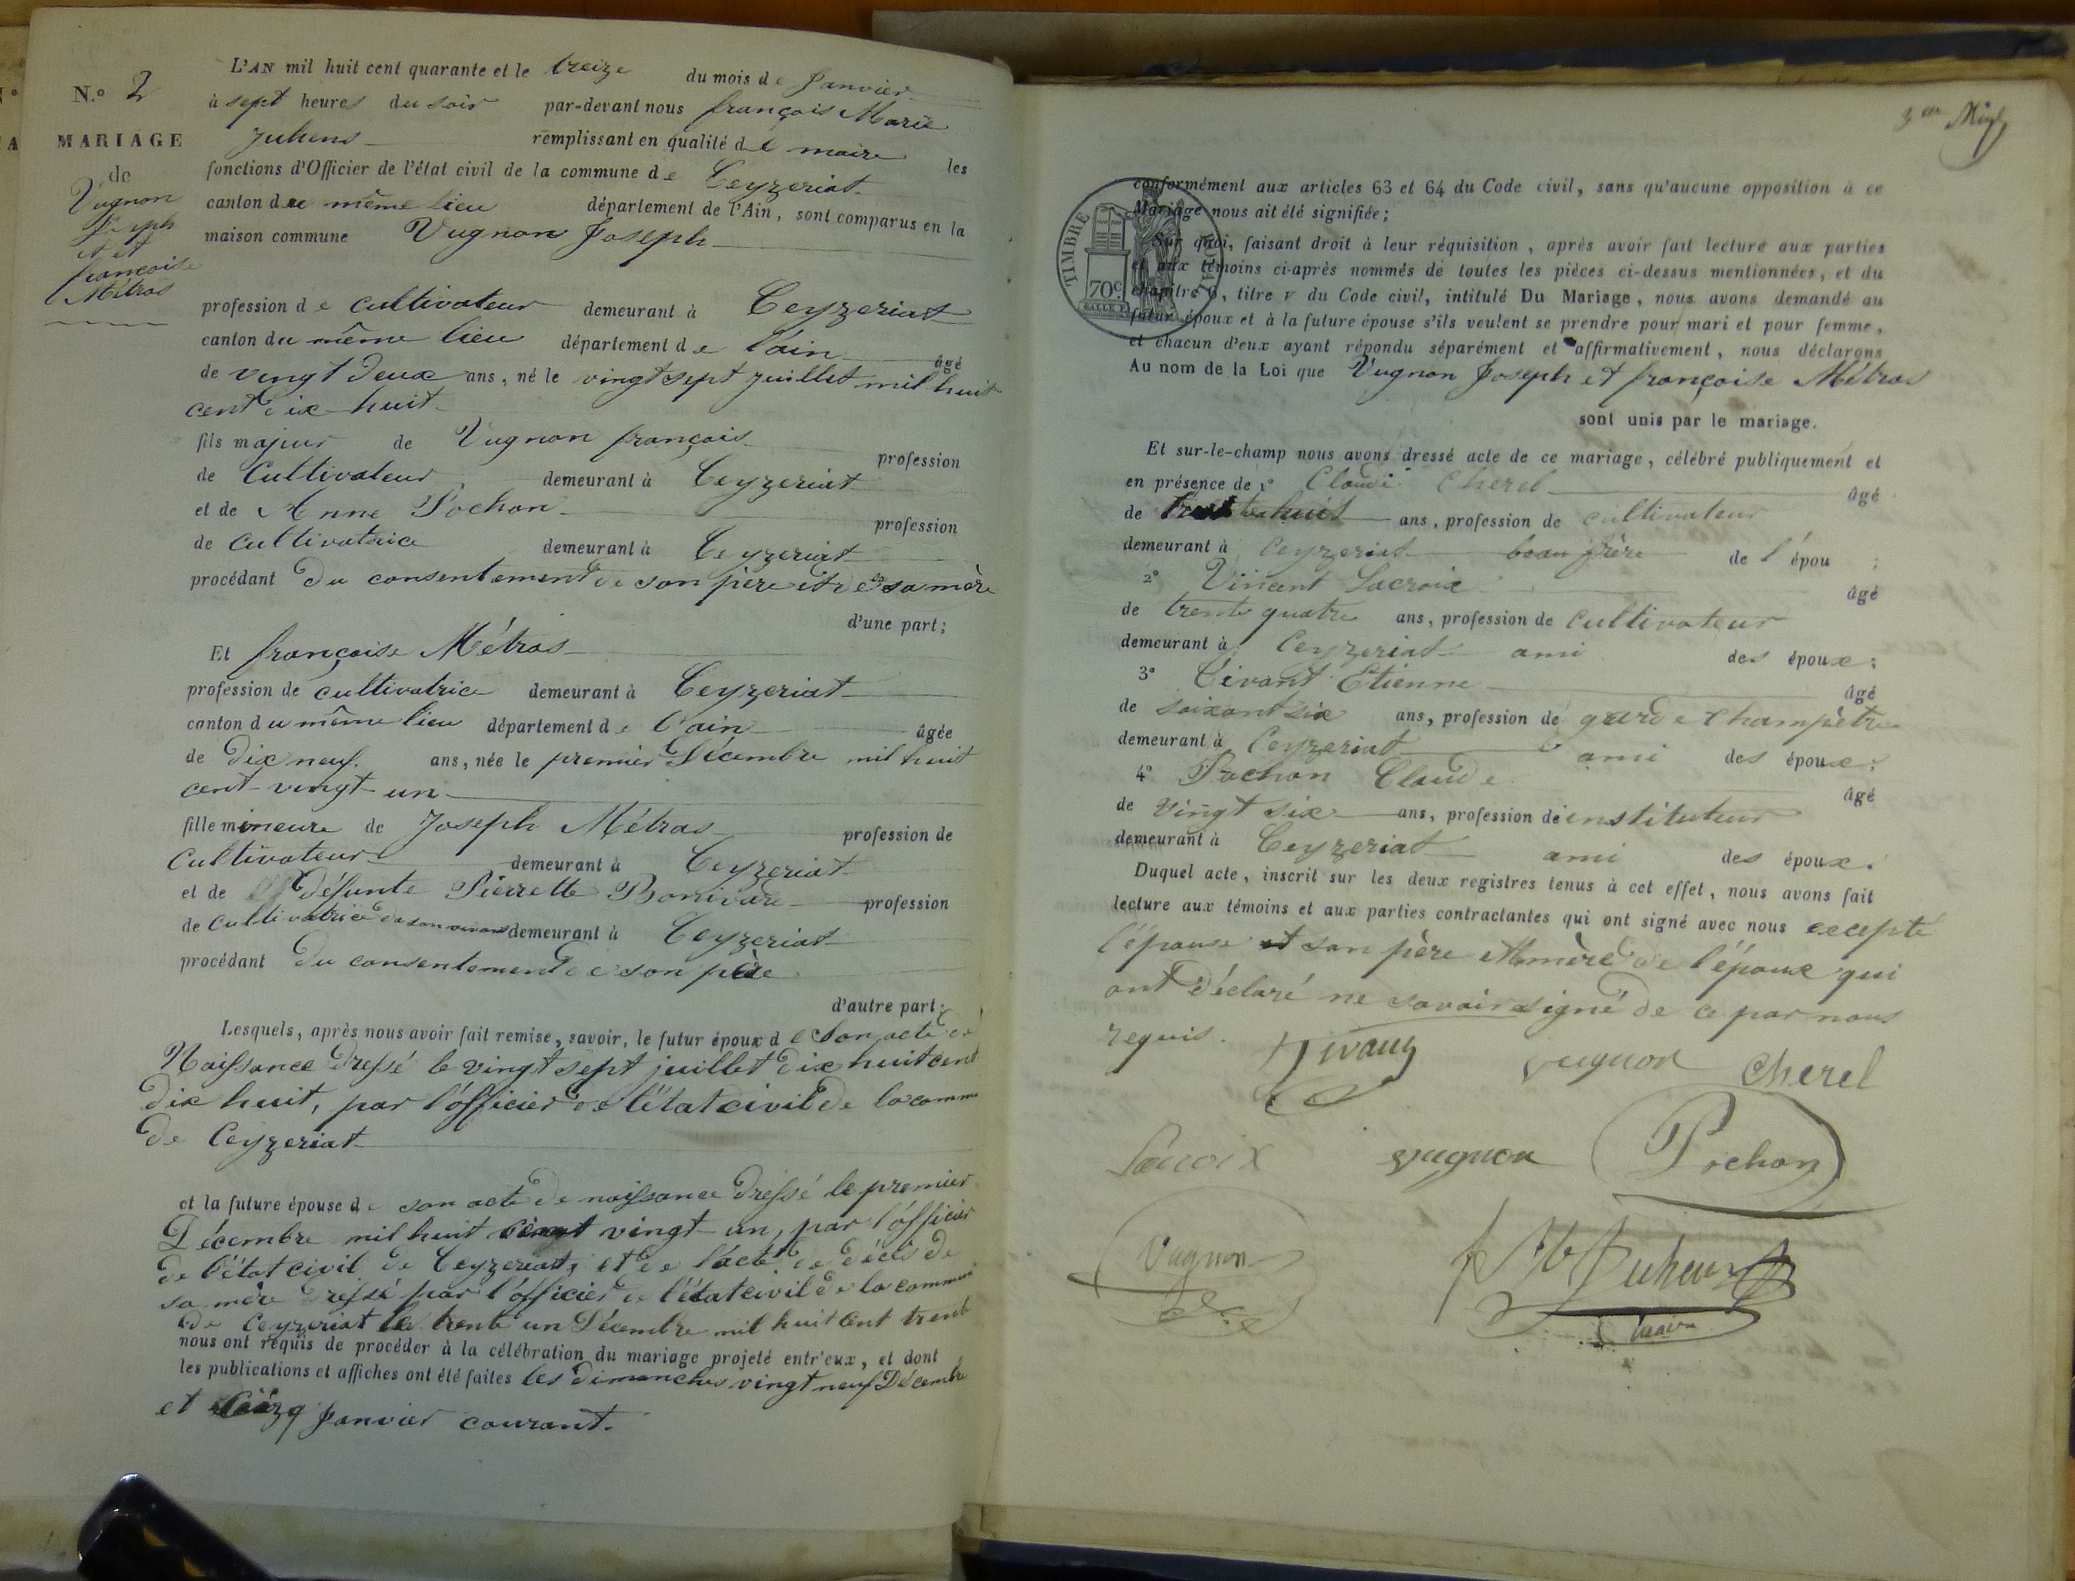 N.º 2
MARIAGE
de
Vugnon
Joseph
et
françoise
Métras
L'AN mil huit cent quarante et le treize du mois de Janvier
à sept heures du soir par-devant nous françois Marie
Juhens remplissant en qualité de maire les
fonctions d'Officier de l'état civil de la commune de Ceyzeriat
canton du même lieu département de l'Ain, sont comparus en la
maison commune Vugnon Joseph
profession de cultivateur demeurant à Ceyzeriat
canton du même lieu département de l'ain âgé
de vingt deux ans, né le vingt sept juillet mil huit
cent dix huit
fils majeur de Vugnon françois profession
de Cultivateur demeurant à Ceyzeriat
et de Anne Pochon profession
de cultivatrice demeurant à Ceyzeriat
procédant du consentement de son père et de sa mère
d'une part;
Et françoise Métras
profession de cultivatrice demeurant à Ceyzeriat
canton du même lieu département de l'ain âgée
de dix neuf ans, née le premier Décembre mil huit
cent vingt un
fille mineure de Joseph Métras profession de
Cultivateur demeurant à Ceyzeriat
et de défunte Pierrette Bonivare profession
de cultivatrice de son vivant demeurant à Ceyzeriat
procédant du consentement de son père
d'autre part;
Lesquels, après nous avoir fait remise, savoir, le futur époux de son acte de
Naissance dressé le vingt sept juillet dix huit cent
dix huit, par l'officier de l'état civil de la commune
de Ceyzeriat
et la future épouse de son acte de naissance dressé le premier
Décembre mil huit cent vingt un, par l'officier
de l'état civil de Ceyzeriat, et de l'acte de décès de
sa mère dressé par l'officier de l'état civil de la commune
de Ceyzeriat le trente un Décembre mil huit cent trente
nous ont requis de procéder à la célébration du mariage projeté entr'eux, et dont
les publications et affiches ont été faites les dimanches vingt neuf Décembre
et cinq Janvier courant.
TIMBRE ROYAL
70c
conformément aux articles 63 et 64 du Code civil, sans qu'aucune opposition à ce
Mariage nous ait été signifiée;
Sur quoi, faisant droit à leur réquisition, après avoir fait lecture aux parties
et aux témoins ci-après nommés de toutes les pièces ci-dessus mentionnées, et du
chapitre 6, titre v du Code civil, intitulé Du Mariage, nous avons demandé au
futur époux et à la future épouse s'ils veulent se prendre pour mari et pour femme,
et chacun d'eux ayant répondu séparément et affirmativement, nous déclarons
Au nom de la Loi que Vugnon Joseph et françoise Métras
sont unis par le mariage.
Et sur-le-champ nous avons dressé acte de ce mariage, célébré publiquement et
en présence de 1º Claude Cherel âgé
de trente huit ans, profession de cultivateur
demeurant à Ceyzeriat beau frère de l'épou ;
2º Vincent Lacroix âgé
de trente quatre ans, profession de cultivateur
demeurant à Ceyzeriat ami des époux;
3º Tivant Etienne âgé
de soixant six ans, profession de garde champêtre
demeurant à Ceyzeriat ami des époux;
4º Pochon Claude âgé
de vingt six ans, profession de instituteur
demeurant à Ceyzeriat ami des époux.
Duquel acte, inscrit sur les deux registres tenus à cet effet, nous avons fait
lecture aux témoins et aux parties contractantes qui ont signé avec nous excepté
l'épouse et son père et mère de l'époux qui
ont déclaré ne savoir signé de ce par nous
requis.
vugnon Cherel
Lacroix vugnon Pochon
Vugnon
maire